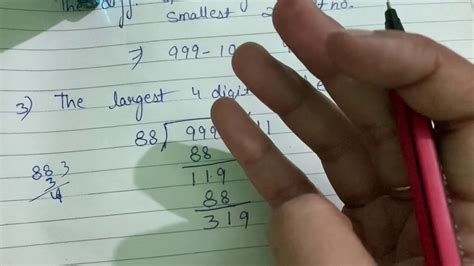 The diff.
smallest 2 no.
⇒ 999-10
3) The largest 4 digit
88 ) 999 11
88
119
88
319
88 3
3
4